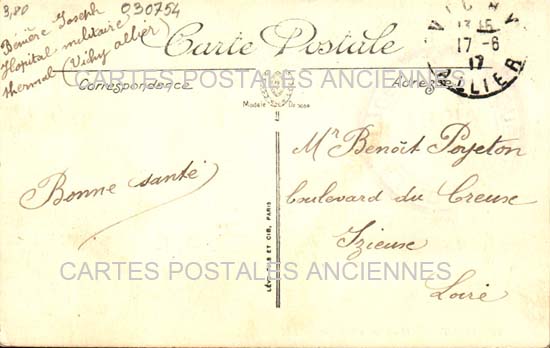 3,80
030754
Benière Joseph
Hopital militaire
thermal (Vichy allier)
Carte Postale
VICHY
13 15
17-6
17
ALLIER
CARTES POSTALES ANCIENNES
Correspondence
Adresse
Modèle Déposé
Bonne santé
Mr Benoît Poyeton
boulevard du Creuse
Izieuse
Loire
LÉVY FILS ET CIE, PARIS
CARTES POSTALES ANCIENNES